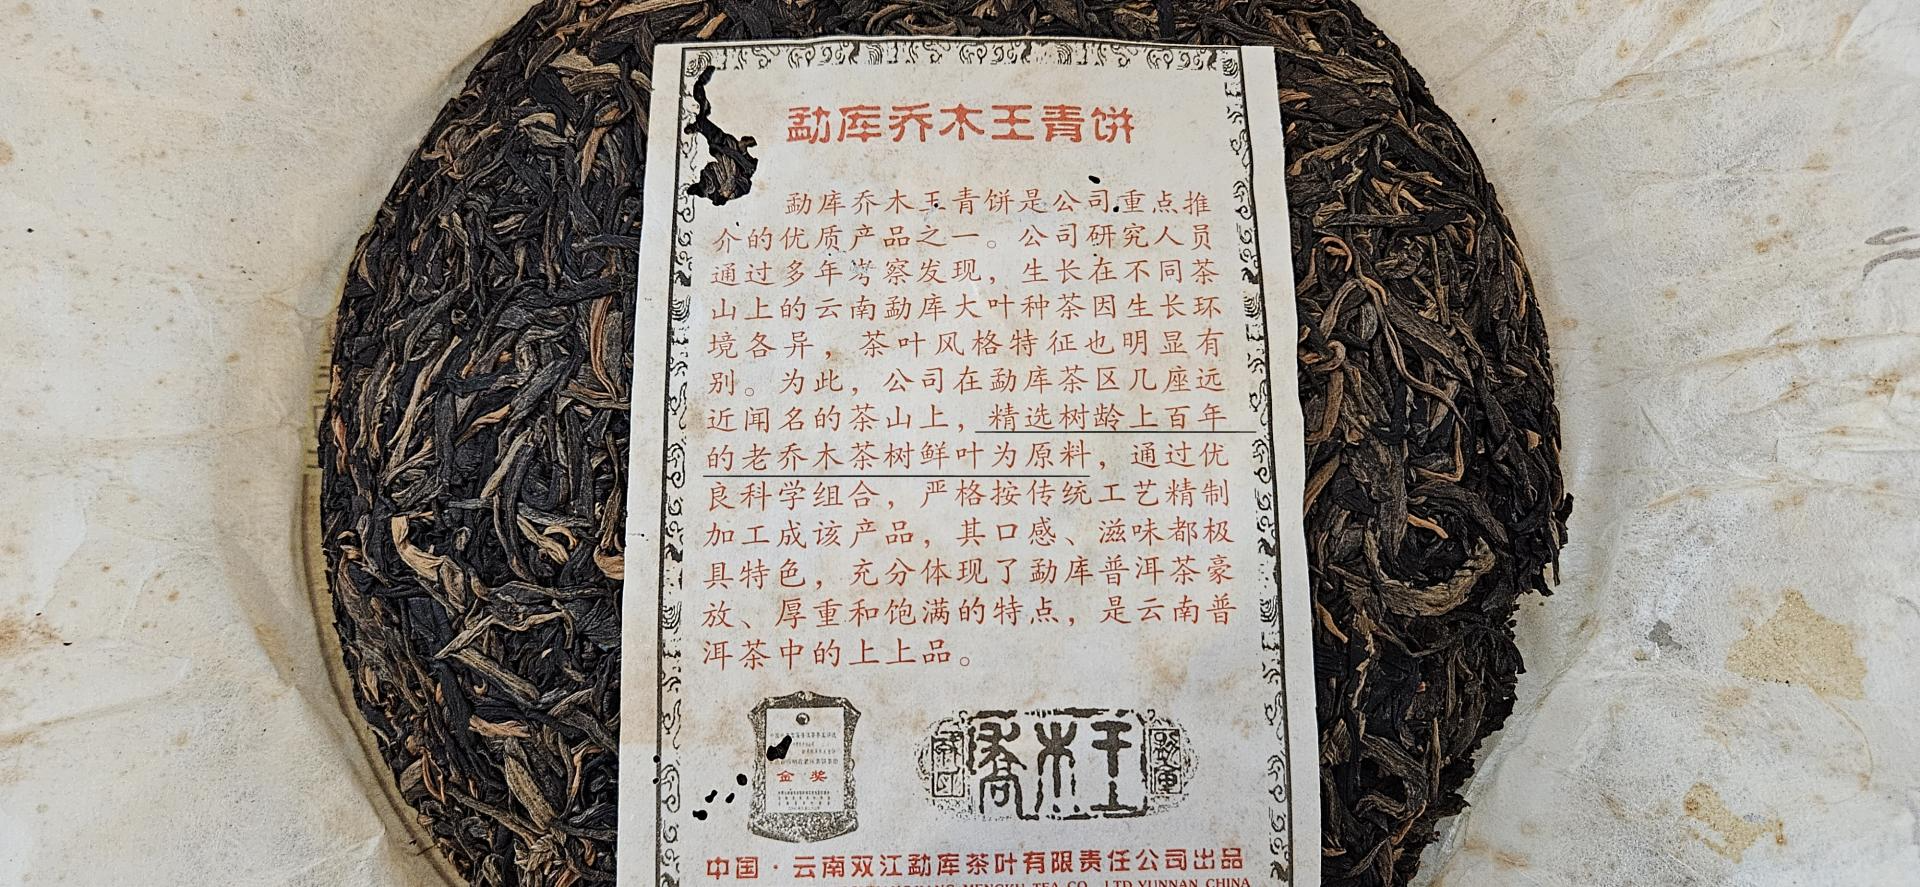 勐库乔木王青饼
勐库乔木王青饼是公司重点推
介的优质产品之一。公司研究人员
通过多年考察发现，生长在不同茶
山上的云南勐库大叶种茶因生长环
境各异，茶叶风格特征也明显有
别。为此，公司在勐库茶区几座远
近闻名的茶山上，精选树龄上百年
的老乔木茶树鲜叶为原料，通过优
良科学组合，严格按传统工艺精制
加工成该产品，其口感、滋味都极
具特色，充分体现了勐库普洱茶豪
放、厚重和饱满的特点，是云南普
洱茶中的上上品。
金奖
喬木王
中国·云南双江勐库茶叶有限责任公司出品
MENGKU TEA CO., LTD YUNNAN CHINA